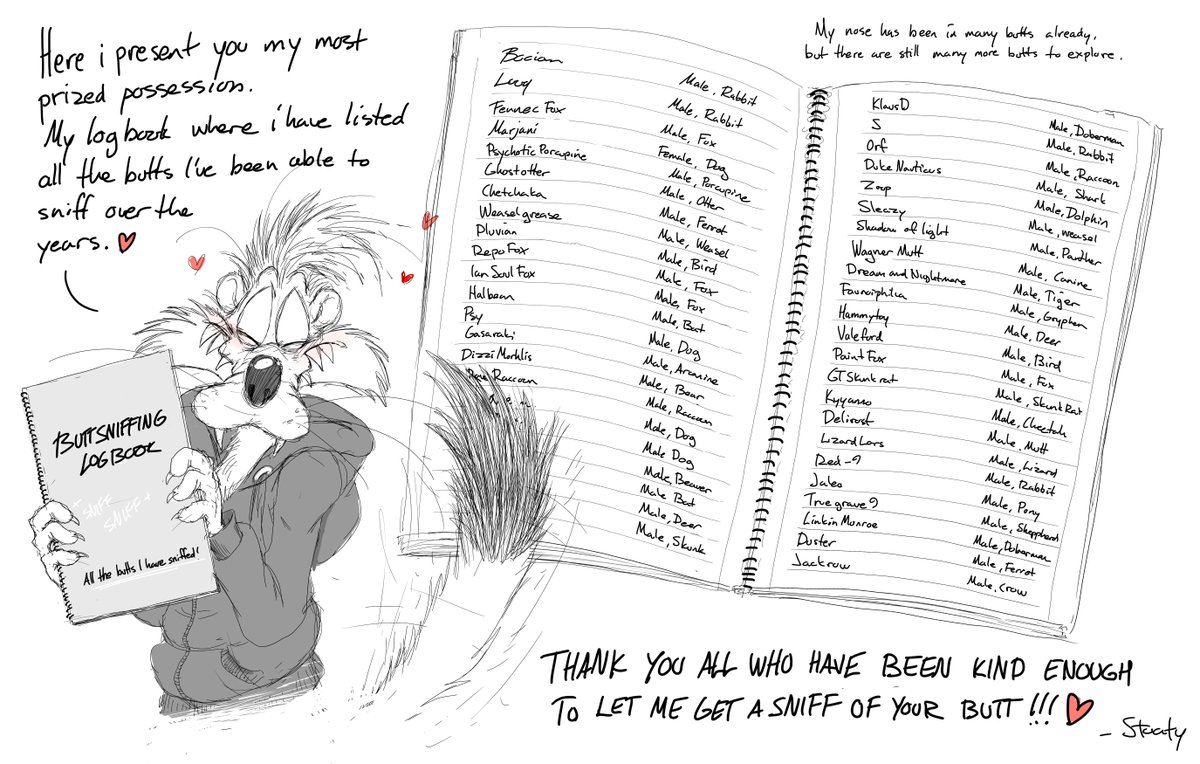 Here i present you my most
prized possession.
My logbook where i have listed
all the butts I've been able to
sniff over the
years.
BUTTSNIFFING
LOGBOOK
SNIFF
SNIFF
All the butts I have sniffed!
Bocian Male, Rabbit
Luuq Male, Rabbit
Fennec Fox Male, Fox
Marjani Female, Dog
Psychotic Porcupine Male, Porcupine
Ghostotter Male, Otter
Chetchaka Male, Ferrot
Weaselgrease Male, Weasel
Pluvian Male, Bird
Repo Fox Male, Fox
Ian Soul Fox Male, Fox
Halbean Male, Bat
Psy Male, Dog
Gasaraki Male, Aranine
Dizzi Morhlis Male, Bear
Raccoon Male, Raccoon
Male, Dog
Male Dog
Male, Beaver
Male Bat
Male, Deer
Male, Skunk
My nose has been in many butts already,
but there are still many more butts to explore.
KlausD Male, Doberman
S Male, Rabbit
Orf Male, Raccoon
Dike Nauticus Male, Shark
Zoup Male, Dolphin
Sleazy Male, weasel
Shadow of light Male, Panther
Wagner Mutt Male, Canine
Dream and Nightmare Male, Tiger
Male, Gryphen
Hammytoy Male, Deer
Valeford Male, Bird
Paint Fox Male, Fox
GTSkunkrat Male, Skunk Rat
Kyyanno Male, Cheetah
Delirost Male, Mutt
Lizard Lars Male, Lizard
Red-9 Male, Rabbit
Jaleo Male, Pony
Truegrave9 Male, Sheppherd
Linkin Monroe Male, Doberman
Duster Male, Ferrot
Jackrow Male, Crow
THANK YOU ALL WHO HAVE BEEN KIND ENOUGH
TO LET ME GET A SNIFF OF YOUR BUTT!!!
- Staaty